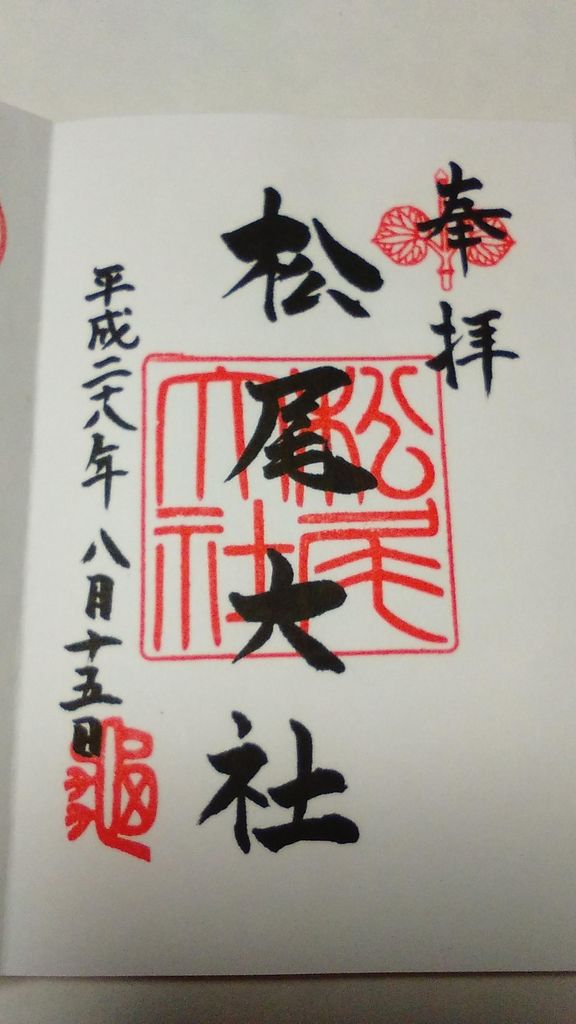 奉拝
松尾大社
松尾大社
平成二十八年八月十五日
亀